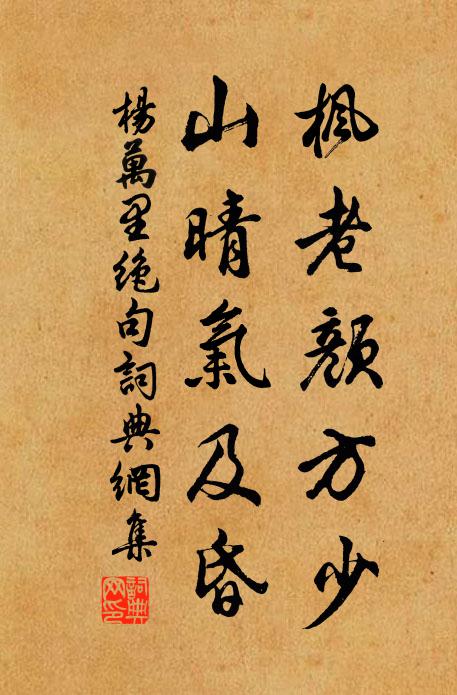 楓老顏方少
山晴氣及昏
楊萬里絶句詞典網集
詞典网印